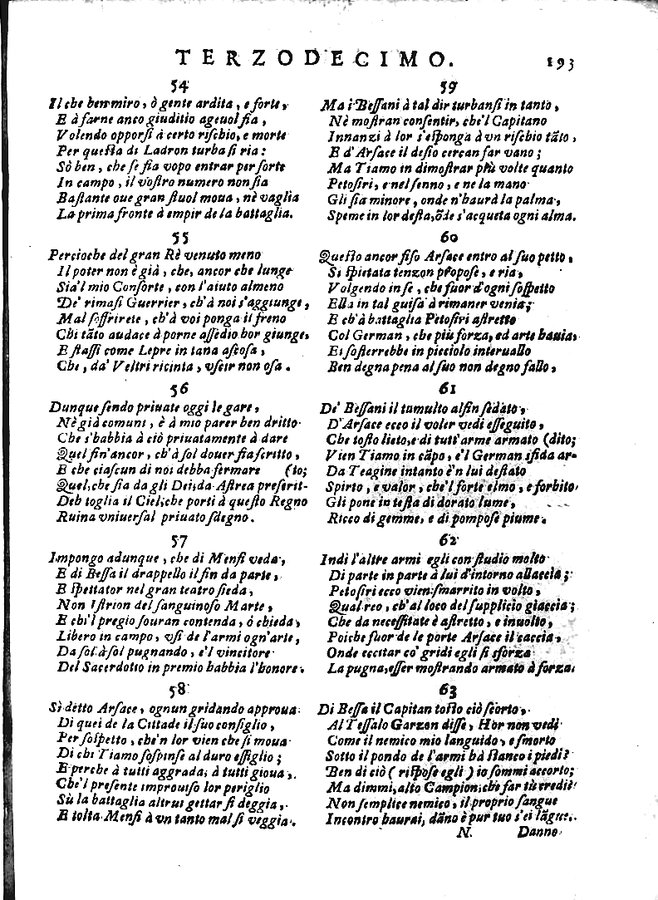 TERZODECIMO. 193
54
Il che ben miro, ò gente ardita, e forte,
E à farne anco giuditio ageuol fia,
Volendo opporsi à certo rischio, e morte
Per questa di Ladron turba sì ria:
Sò ben, che se fia vopo entrar per forte
In campo, il vostro numero non fia
Bastante oue gran stuol moua, nè vaglia
La prima fronte à empir de la battaglia.
55
Percioche del gran Rè venuto meno
Il poter non è già, che, ancor che lunge
Sia'l mio Consorte, con l'aiuto almeno
De' rimasi Guerrier, ch'à noi s'aggiunge,
Mal soffrirete, ch'à voi ponga il freno
Chi tãto audace à porne assedio hor giunge,
E stassi come Lepre in tana ascosa,
Che, da' Veltri ricinta, vscir non osa.
56
Dunque sendo priuate oggi le gare,
Nè già comuni, è à mio parer ben dritto
Che s'habbia à ciò priuatamente à dare
Quel fin'ancor, ch'à sol douer fia scritto,
E che ciascun di noi debba fermare (to;
Quel, che fia da gli Dei, da Astrea prescrit-
Deh toglia il Ciel, che porti à questo Regno
Ruina vniuersal priuato sdegno.
57
Impongo adunque, che di Menfi veda,
E di Bessa il drappello il fin da parte,
E spettator nel gran teatro sieda,
Non istrion del sanguinoso Marte,
E chi'l pregio souran contenda, ò chieda,
Libero in campo, vsi de l'armi ogn'arte,
Da sol à sol pugnando, e'l vincitore
Del Sacerdotto in premio habbia l'honore.
58
Sì detto Arsace, ognun gridando approua
Di quei de la Cittade il suo consiglio,
Per sospetto, che'n lor vien che si moua
Di chi Tiamo sospinse al duro essiglio;
E perche à tutti aggrada, à tutti gioua,
Che'l presente improuiso lor periglio
Sù la battaglia altrui gettar si deggia,
E tolta Menfi à vn tanto mal si veggia.
59
Ma i Bessani à tal dir turbansi in tanto,
Nè mostran consentir, che'l Capitano
Innanzi à lor s'esponga à vn rischio tãto,
E d'Arsace il desio cercan far vano;
Ma Tiamo in dimostrar più volte quanto
Petosiri, e nel senno, e ne la mano
Gli sia minore, onde n'haurà la palma,
Speme in lor desta, õde s'acqueta ogni alma.
60
Questo ancor fiso Arsace entro al suo petto,
Sì spietata tenzon propose, e ria,
Volgendo in se, che fuor d'ogni sospetto
Ella in tal guisa à rimaner venia;
E ch'à battaglia Petosiri astretto
Col German, che più forza, ed arte hauia,
Ei sosterrebbe in picciolo interuallo
Ben degna pena al suo non degno fallo,
61
De' Bessani il tumulto alfin sedato,
D'Arsace ecco il voler vedi esseguito,
Che tosto lieto, e di tutt'arme armato (dito;
Vien Tiamo in cãpo, e'l German isfida ar-
Da Teagine intanto è'n lui destato
Spirto, e valor, che'l forte elmo, e forbito
Gli pone in testa di dorato lume,
Ricco di gemme, e di pompose piume.
62
Indi l'altre armi egli con studio molto
Di parte in parte à lui d'intorno allaccia;
Petosiri ecco vien smarrito in volto,
Qual reo, ch'al loco del supplicio giaccia;
Che da necessitate è astretto, e inuolto,
Poiche fuor de le porte Arsace il caccia,
Onde eccitar co' gridi egli si sforza
La pugna, esser mostrando armato à forza.
63
Di Bessa il Capitan tosto ciò scorto,
Al Tessalo Garzon disse, Hor non vedi
Come il nemico mio languido, e smorto
Sotto il pondo de l'armi hà stanco i piedi?
Ben di ciò (rispose egli) io sommi accorto;
Ma dimmi, alto Campion, chè far tù credi?
Non semplice nemico, il proprio sangue
Incontro haurai, dãno è pur tuo s'ei lãgue.
N. Danno